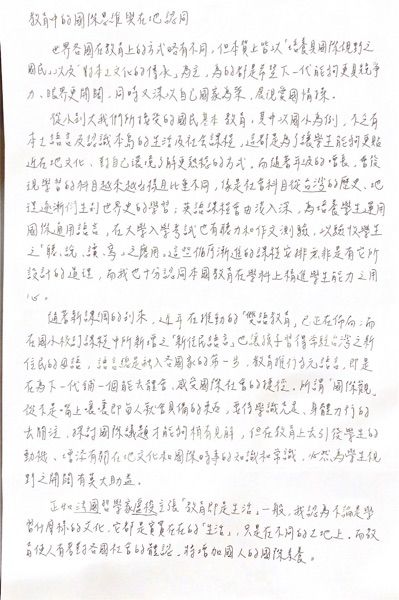 教育中的國際思維與在地認同
世界各國在教育上的方式略有不同,但本質上皆以「培養具國際視野之
國民」以及「對本土文化的傳承」為主,為的都是希望下一代能夠更具競爭
力、眼界更開闊,同時又深以自己國家為榮,展現愛國情操。
從小到大我們所接受的國民基本教育,其中以國小為例,不乏有
本土語言及認識本島的生活及社會課程,這都是為了讓學生能夠更貼
近在地文化、對自己環境了解更啟程的方式。而隨著年級的增長,會發
現學習的科目越來越分得且比重不同,像是社會科目從台灣的歷史、地
理逐漸衍生到世界史的學習;英語課程會由淺入深,為培養學生運用
國際通用語言,在大學入學考試也有聽力和作文測驗,以驗收學生
之「聽、說、讀、寫」之應用。這些循序漸進的課程安排並非是有它所
設計的道理,而我也十分認同本國教育在學科上精進學生能力之用
心。
隨著新課綱的到來,近年在推動的「雙語教育」已正在佈向;而
在國小校訂課程中所新增之「新住民語言」也讓孩子習得等經台灣之新
住民的母語,語言總是融入各國家的第一步,教育推行多元語言,即是
在為下一代鋪一個能去體會、感受國際社會的捷徑。所謂「國際觀」
從不是嘴上嚷嚷即每人就會具備的素養,當你學識充足、身體力行的
去關注、探討國際議題才能夠稍有見解,但在教育上去引發學生的
動機、增添有關在地文化和國際時事的知識和常識,必然為學生視
野之開闊有莫大助益。
正如法國哲學家盧梭主張「教育即是生活」一般,我認為不論是學
習什麼樣的文化,它都是實實在在的「生活」,只是在不同的土地上,而教
育使人有著對各國社會的體認,將增加國人的國際素養。